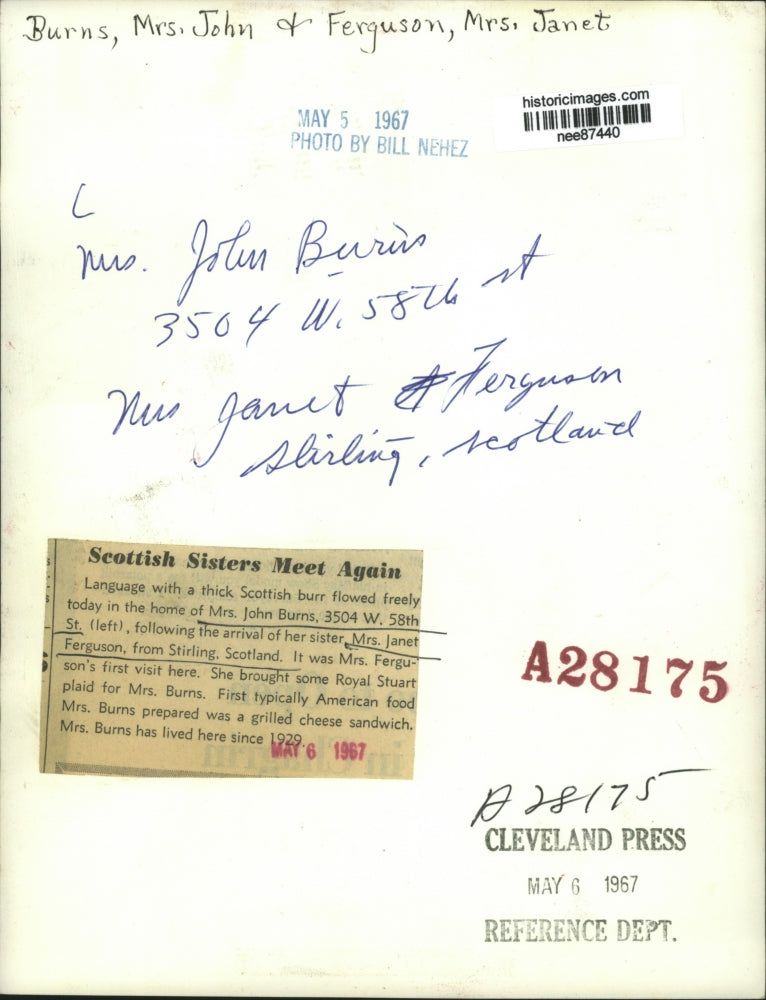 Burns, Mrs. John & Ferguson, Mrs. Janet
historicimages.com
nee87440
MAY 5 1967
PHOTO BY BILL NEHEZ
L
Mrs. John Burns
3504 W. 58th st
Mrs Janet Ferguson
Stirling, Scotland
Scottish Sisters Meet Again
Language with a thick Scottish burr flowed freely
today in the home of Mrs. John Burns, 3504 W. 58th
St. (left), following the arrival of her sister, Mrs. Janet
Ferguson, from Stirling, Scotland. It was Mrs. Fergu-
son's first visit here. She brought some Royal Stuart
plaid for Mrs. Burns. First typically American food
Mrs. Burns prepared was a grilled cheese sandwich.
Mrs. Burns has lived here since 1929.
MAY 6 1967
A28175
A28175
CLEVELAND PRESS
MAY 6 1967
REFERENCE DEPT.